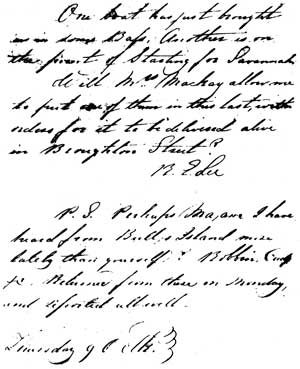 One boat has just brought
us in some Days. Another is on
the point of Starting for Savannah
Will Mrs Mackay allow me
to put one of them in this last, with
orders for it to be delivered alive
in Broughton Street?
R. E. Lee
P. S. Perhaps Ma,am I have
heard from Bull's Island more
lately than yourself.
from there on Monday,
and reported all well.
Thursday 9 O